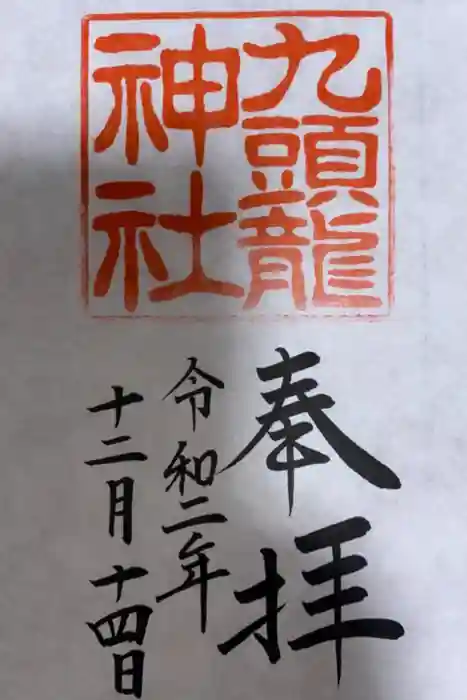 九頭龍
神社
奉拝
令和二年
十二月十四日